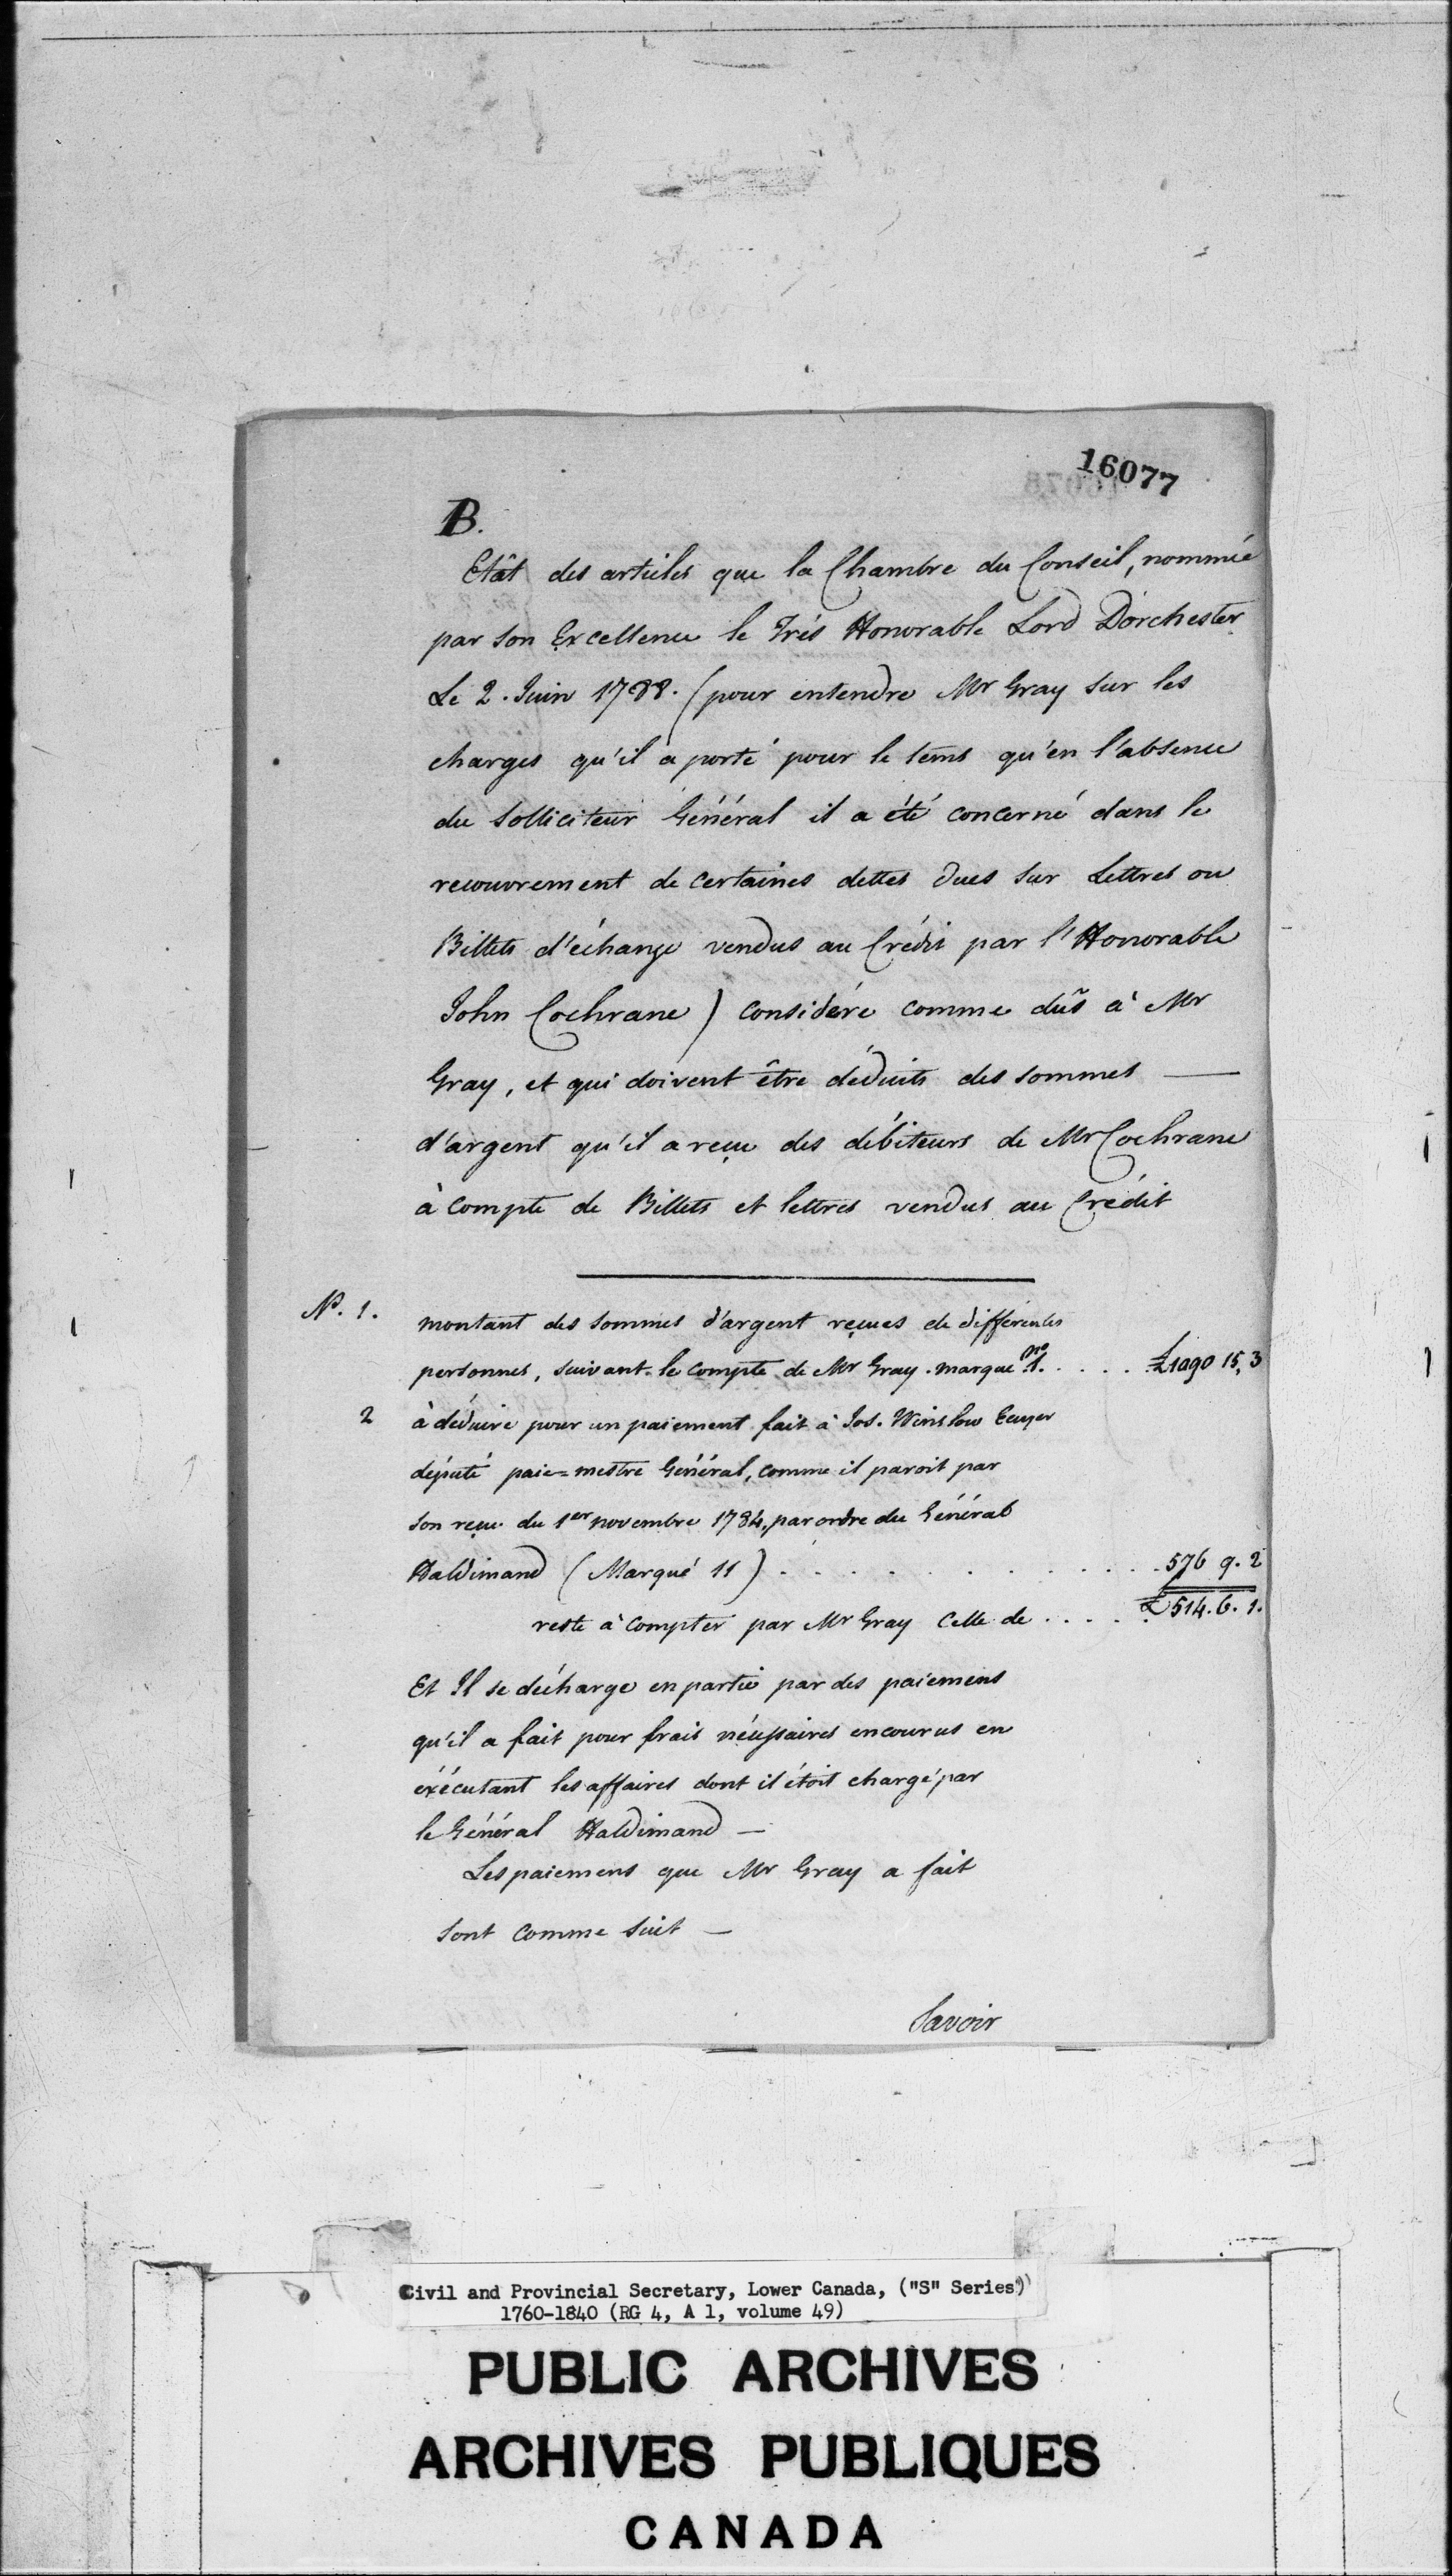 16077
B.
Etât des articles que la Chambre du Conseil, nommée
par son Excellence le Très Honorable Lord Dorchester
Le 2. Juin 1788. (pour entendre Mr Gray sur les
charges qu'il a porté pour le tems qu'en l'absence
du Solliciteur Général il a été concerné dans le
recouvrement de certaines dettes dues sur Lettres ou
Billets d'échange vendus au Crédit par l'Honorable
John Cochrane) considéré comme dûs à Mr
Gray, et qui doivent être déduits des sommes —
d'argent qu'il a reçu des débiteurs de Mr Cochrane
à compte de Billets et lettres vendus au Crédit
No. 1. montant des sommes d'argent reçues de différentes
personnes, suivant le compte de Mr Gray. marqué no 1. . . . . £1090 15, 3
2 à déduire pour un paiement fait à Jos. Winslow Ecuyer
député paie=mestre Général, comme il paroit par
son reçu du 1er novembre 1784, par ordre du Général
Haldimand (Marqué 11) . . . . . . . . 576 9. 2
reste à compter par Mr Gray celle de . . . . . £514. 6. 1.
Et Il se décharge en partie par des paiemens
qu'il a fait pour frais nécessaires encourus en
éxécutant les affaires dont il étoit chargé par
le Général Haldimand —
Les paiemens que Mr Gray a fait
sont comme suit —
Savoir
Civil and Provincial Secretary, Lower Canada, ("S" Series)
1760-1840 (RG 4, A 1, volume 49)
PUBLIC ARCHIVES
ARCHIVES PUBLIQUES
CANADA